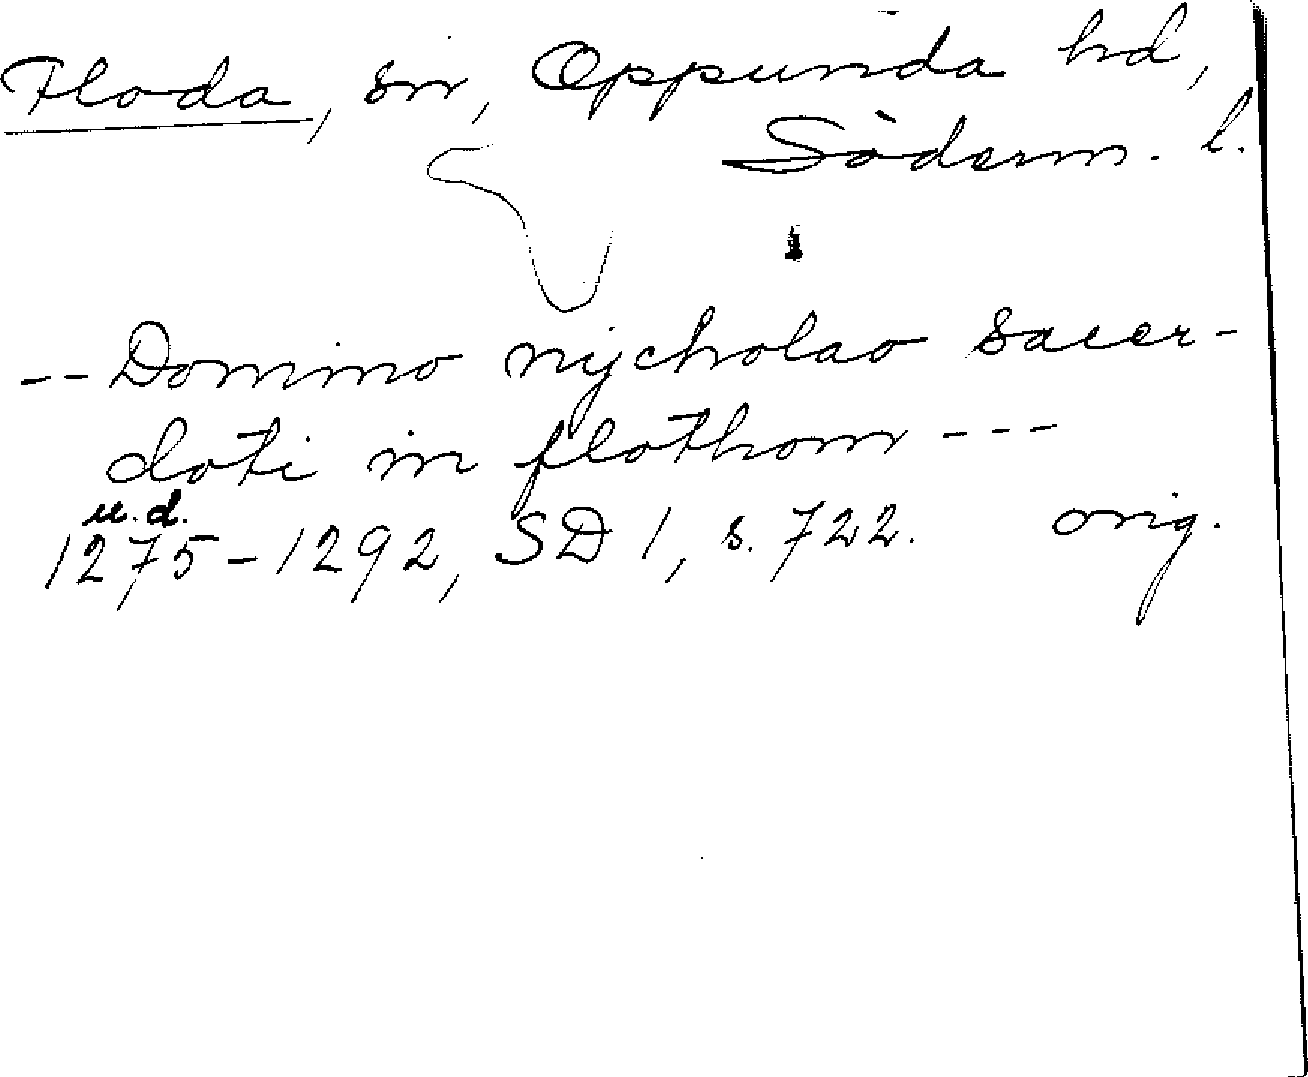 Floda, sn, Oppunda hd,
Söderm. l.
-- Domino nycholao sacer-
doti in flothom ---
u.d.
1275-1292, SD 1, s. 722. orig.